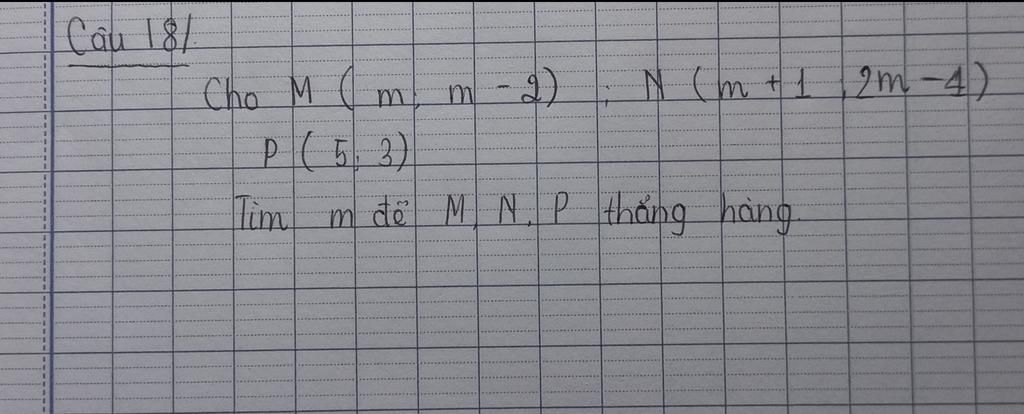 Câu 18/.
Cho M ( m, m - 2) ; N ( m + 1, 2m - 4)
P ( 5, 3)
Tìm m để M, N, P thẳng hàng.